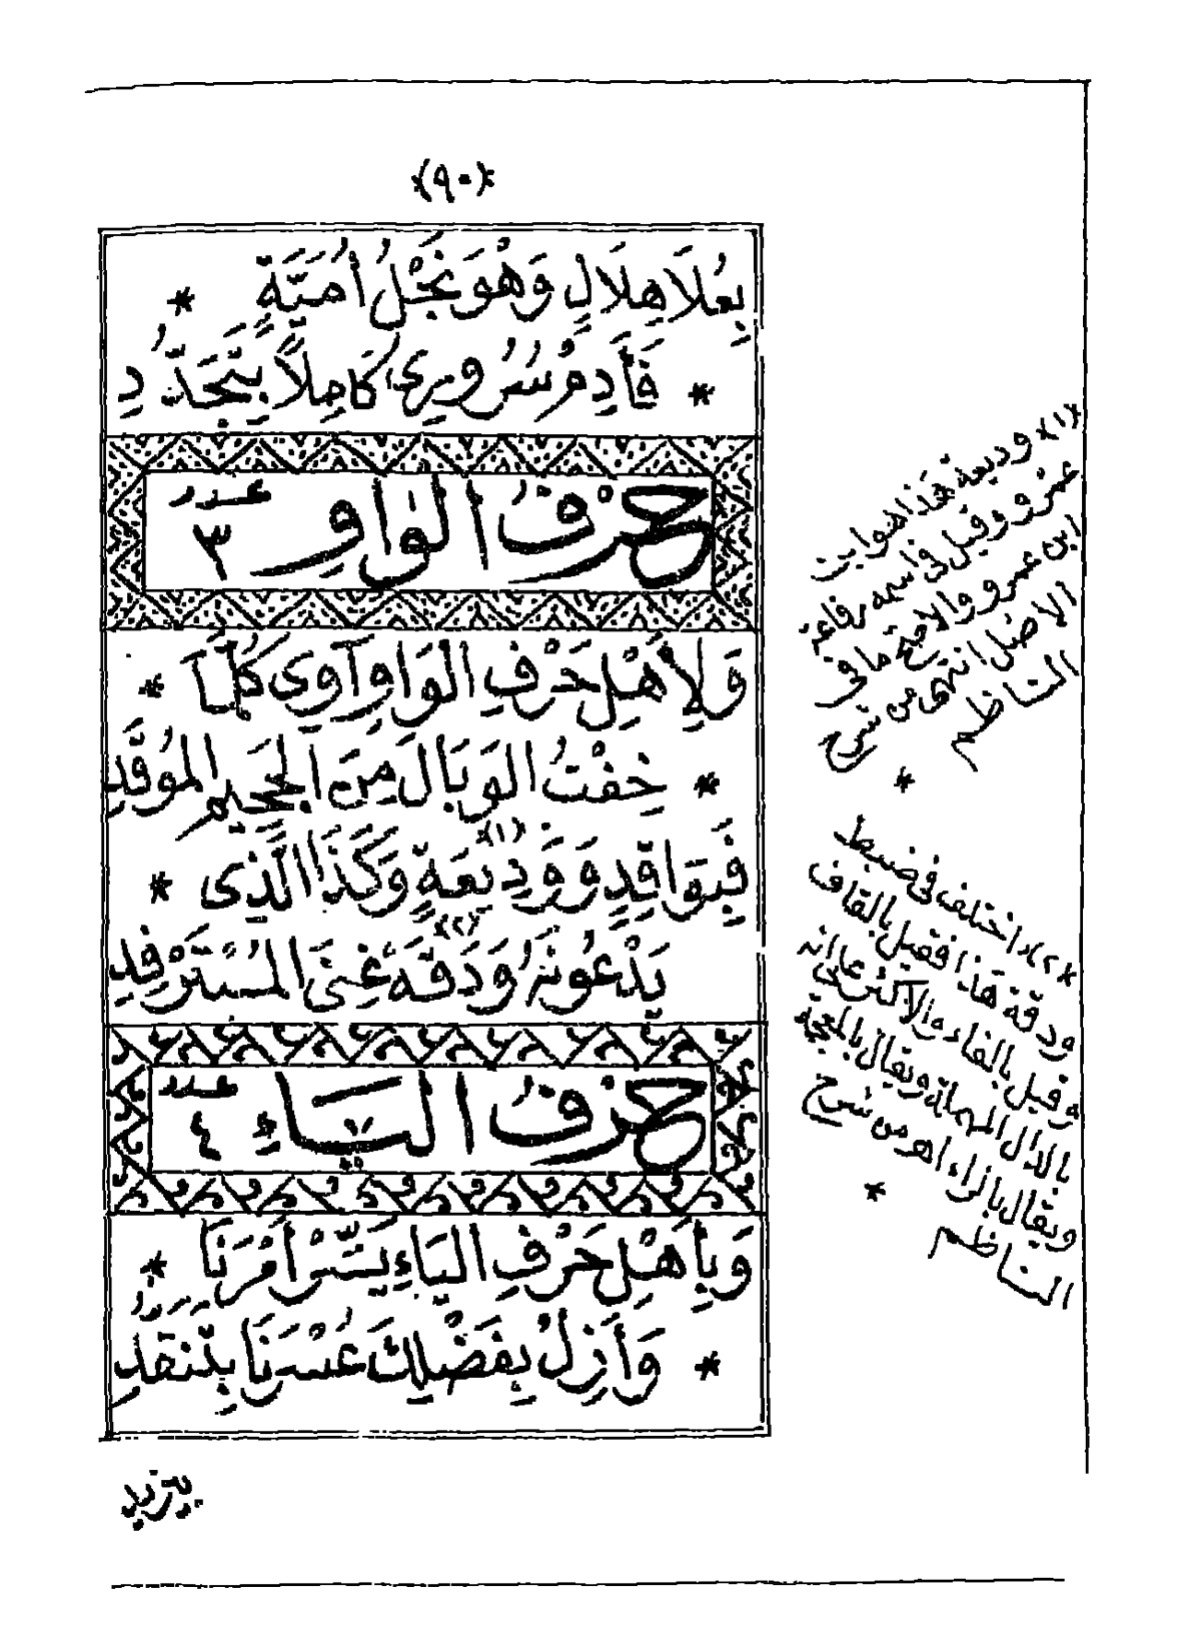 ﴿٩٠﴾
بِعُلَا هِلَالٍ وَهْوَ نَجْلُ أُمَيَّةٍ *
* فَأَدِمْ سُرُورِي كَامِلًا بِتَجَدُّدِ
حَرْفُ الوَاوِ عدد ٣
وَلِأَهْلِ حَرْفِ الوَاوِ آوِي كُلَّمَا *
* خِفْتُ الوَبَالَ مِنَ الجَحِيمِ المُوقَدِ
فَبِوَاقِدٍ وَوَدِيعَةٍ (١) وَكَذَا الَّذِي *
يَدْعُونَهُ وَدَقَةَ (٢) غِنَى المُسْتَرْفِدِ
حَرْفُ اليَاءِ عدد ٤
وَبِأَهْلِ حَرْفِ اليَاءِ يَسِّرْ أَمْرَنَا *
* وَأَزِلْ بِفَضْلِكَ عُسْرَنَا
بيزيد
(١) وديعة هذا هو ابن
عمرو وقيل في اسمه رفاعة
ابن عمرو والاصح ما في
الاصل انتهى من شرح
الناظم
*
(٢) اختلف في ضبط
ودقة هذا فقيل بالقاف
وقيل بالفاء والاكثر على انه
بالدال المهملة ويقال بالمعجمة
ويقال بالزاء اهـ من شرح
الناظم
*